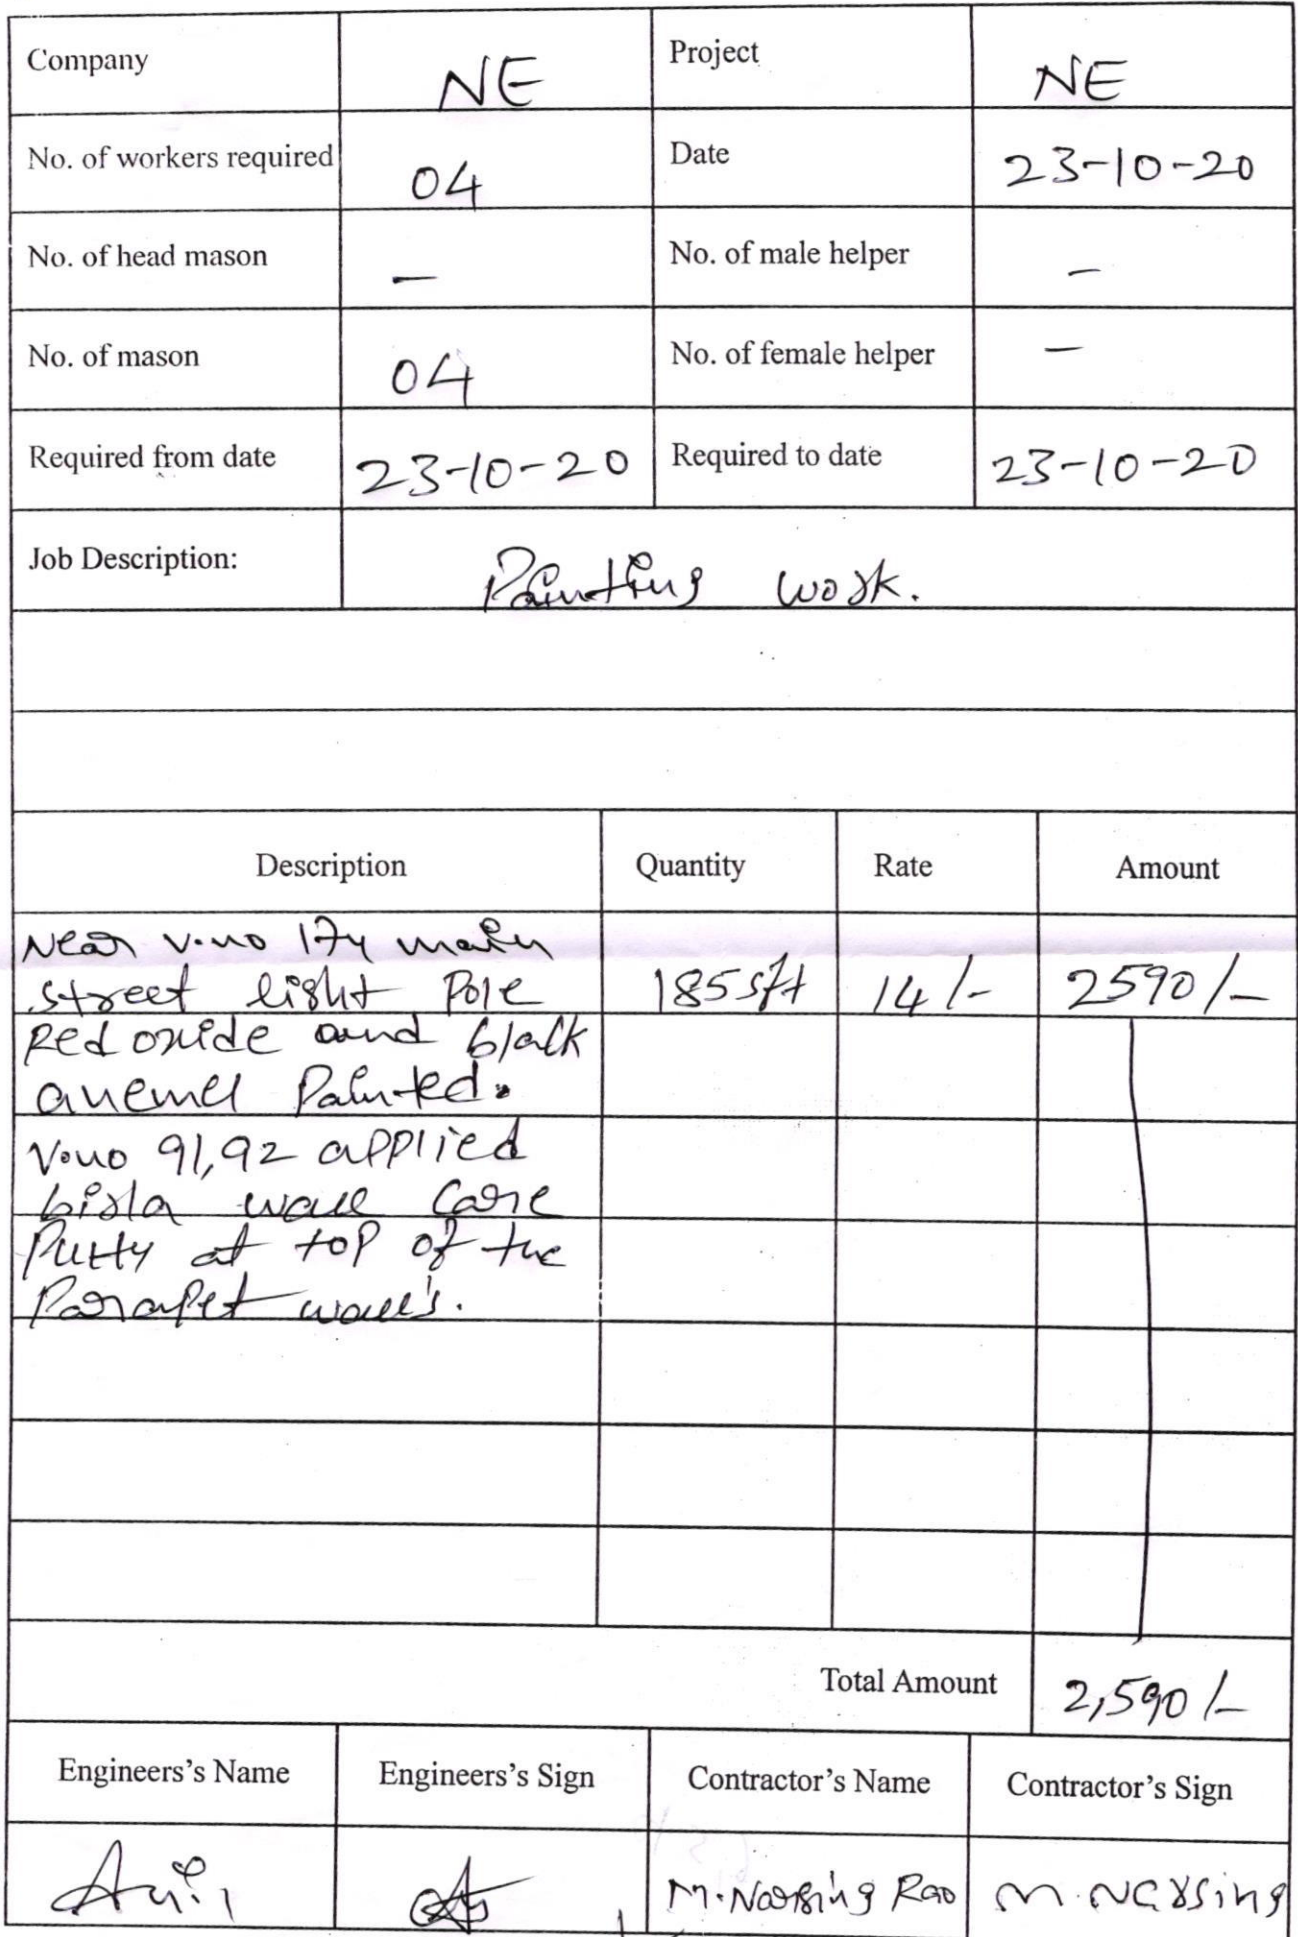 Company NE Project NE
No. of workers required 04 Date 23-10-20
No. of head mason - No. of male helper -
No. of mason 04 No. of female helper -
Required from date 23-10-20 Required to date 23-10-20
Job Description: Painting work.
Description Quantity Rate Amount
Near v.no 174 main
street light Pole 185 sft 14/- 2590/-
Red oxide and black
anemel Painted.
V.no 91,92 applied
birla wall care
Putty at top of the
Parapet wall's.
Total Amount 2,590/-
Engineers's Name Engineers's Sign Contractor's Name Contractor's Sign
Anil M. Narsing Rao M. Narsing